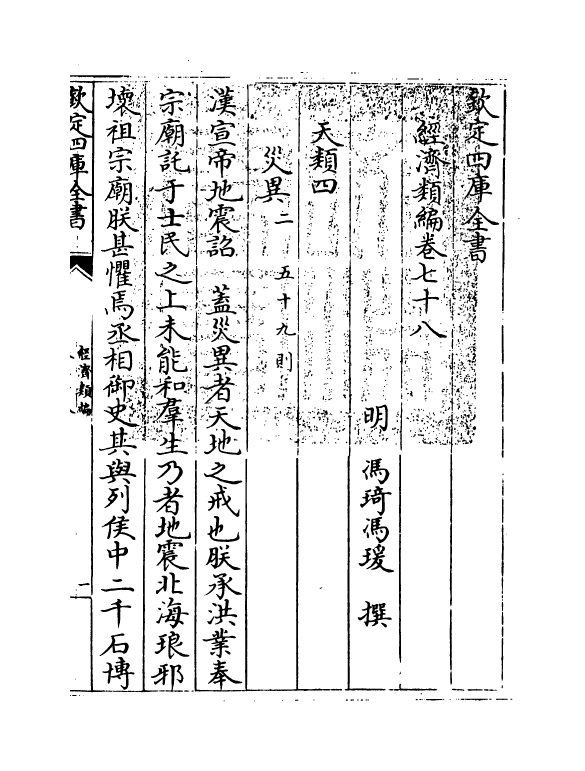 欽定四庫全書
經濟類編卷七十八
明 馮琦馮瑗 撰
天類四
災異二 五十九則
漢宣帝地震詔 蓋災異者天地之戒也朕承洪業奉
宗廟託于士民之上未能和羣生乃者地震北海琅邪
壞祖宗廟朕甚懼焉丞相御史其與列侯中二千石博
欽定四庫全書
經濟類編
一